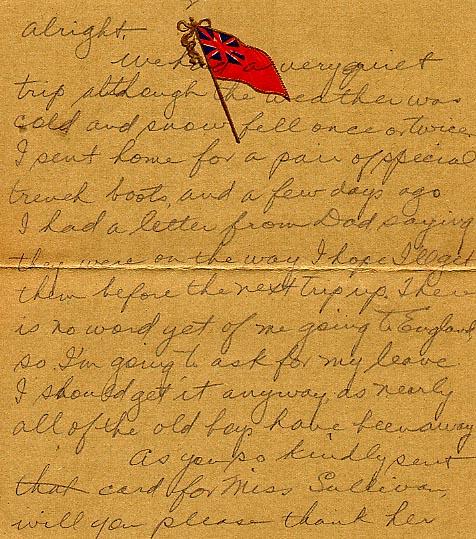 alright.
We had a very quiet
trip although the weather was
cold and snow fell once or twice
I sent home for a pair of special
trench boots, and a few days ago
I had a letter from Dad saying
they were on the way I hope I'll get
them before the next trip up. There
is no word yet of me going to England
so I'm going to ask for my leave.
I should get it anyway as nearly
all of the old boys have been away
As you so kindly sent
that card for Miss Sullivan,
will you please thank her